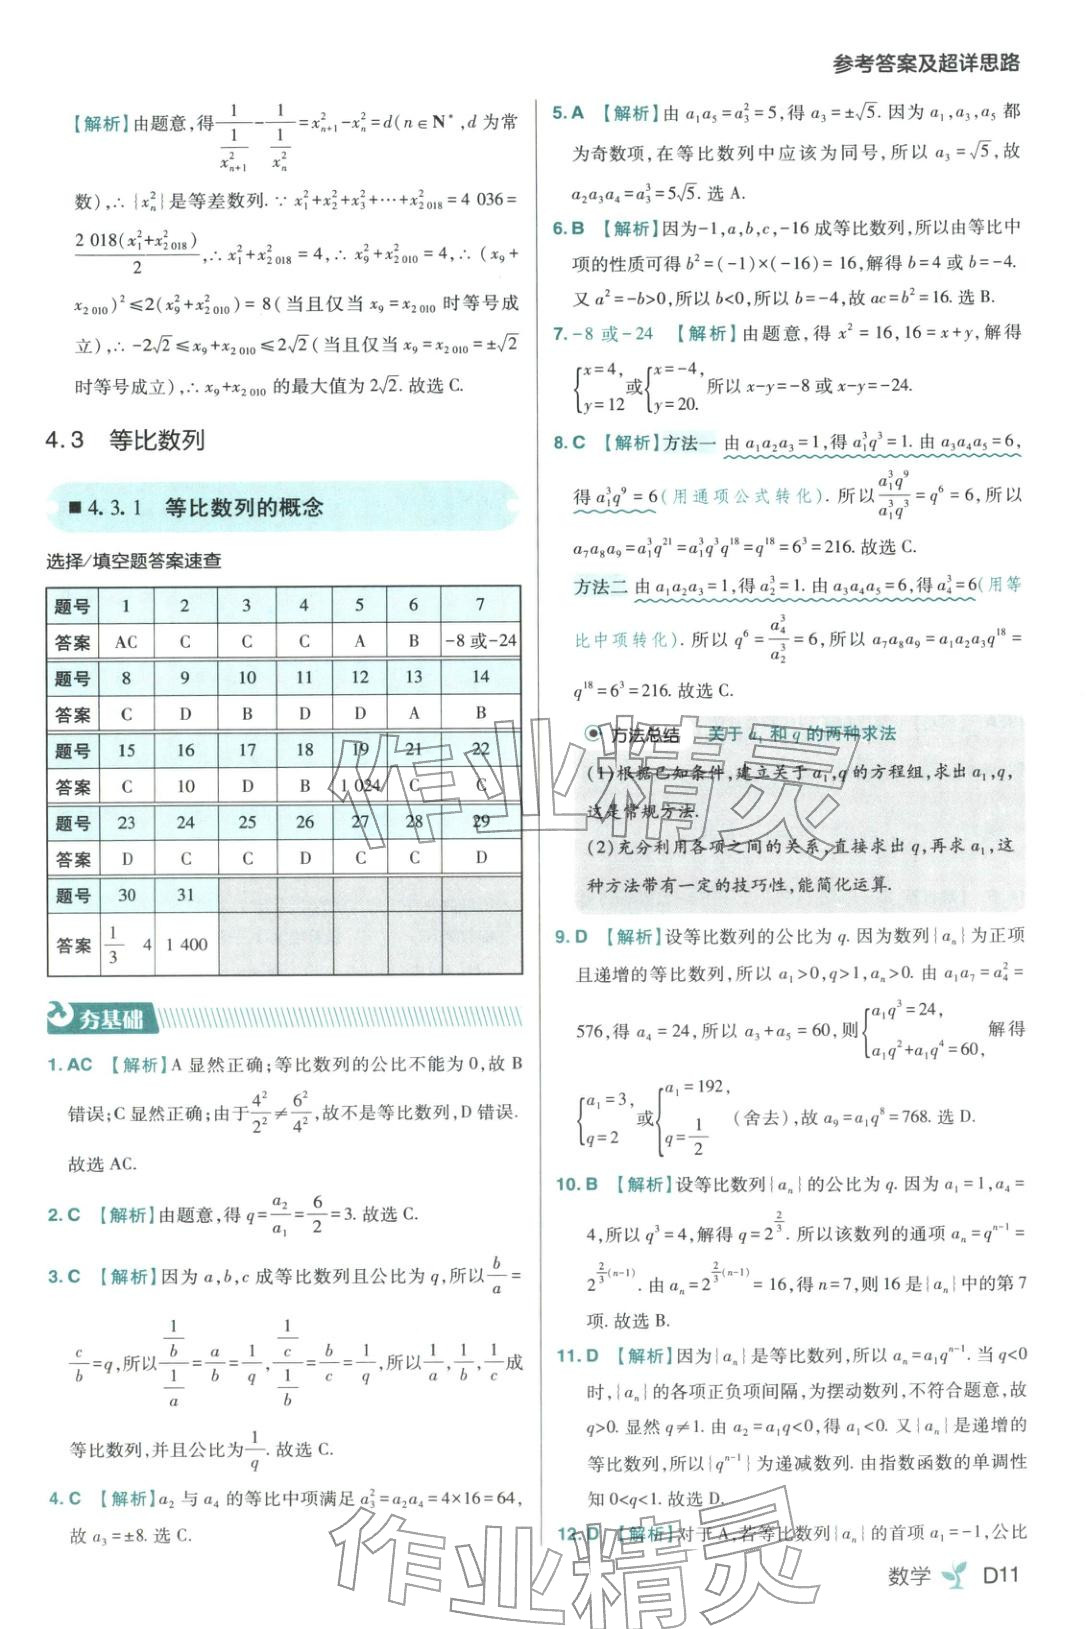 参考答案及超详思路
【解析】由题意,得 1/(1/x²ₙ₊₁) - 1/(1/x²ₙ) = x²ₙ₊₁-x²ₙ=d(n∈N*,d 为常
数),∴{x²ₙ}是等差数列.∵x₁²+x₂²+x₃²+…+x²₂₀₁₈=4 036=
2 018(x₁²+x²₂₀₁₈)/2,∴x₁²+x²₂₀₁₈=4,∴x₉²+x²₂₀₁₀=4,∴(x₉+
x₂₀₁₀)²≤2(x₉²+x²₂₀₁₀)=8(当且仅当 x₉=x₂₀₁₀ 时等号成
立),∴-2√2≤x₉+x₂₀₁₀≤2√2(当且仅当 x₉=x₂₀₁₀=±√2
时等号成立),∴x₉+x₂₀₁₀ 的最大值为 2√2.故选 C.
4.3 等比数列
■ 4.3.1 等比数列的概念
选择/填空题答案速查
题号 1 2 3 4 5 6 7
答案 AC C C C A B -8 或-24
题号 8 9 10 11 12 13 14
答案 C D B D D A B
题号 15 16 17 18 19 21 22
答案 C 10 D B 1 024 C C
题号 23 24 25 26 27 28 29
答案 D C C D C C D
题号 30 31
答案 1/3 4 1 400
夯基础
1. AC 【解析】A 显然正确;等比数列的公比不能为 0,故 B
错误;C 显然正确;由于 4²/2²≠6²/4²,故不是等比数列,D 错误.
故选 AC.
2. C 【解析】由题意,得 q=a₂/a₁=6/2=3.故选 C.
3. C 【解析】因为 a,b,c 成等比数列且公比为 q,所以 b/a=
c/b=q,所以 (1/b)/(1/a)=a/b=1/q,(1/c)/(1/b)=b/c=1/q,所以 1/a,1/b,1/c 成
等比数列,并且公比为 1/q.故选 C.
4. C 【解析】a₂ 与 a₄ 的等比中项满足 a₃²=a₂a₄=4×16=64,
故 a₃=±8.选 C.
5. A 【解析】由 a₁a₅=a₃²=5,得 a₃=±√5.因为 a₁,a₃,a₅ 都
为奇数项,在等比数列中应该为同号,所以 a₃=√5,故
a₂a₃a₄=a₃³=5√5.选 A.
6. B 【解析】因为-1,a,b,c,-16 成等比数列,所以由等比中
项的性质可得 b²=(-1)×(-16)=16,解得 b=4 或 b=-4.
又 a²=-b>0,所以 b<0,所以 b=-4,故 ac=b²=16.选 B.
7. -8 或-24 【解析】由题意,得 x²=16,16=x+y,解得
{x=4, y=12 或 {x=-4, y=20. 所以 x-y=-8 或 x-y=-24.
8. C 【解析】方法一 由 a₁a₂a₃=1,得 a₁³q³=1.由 a₃a₄a₅=6,
得 a₁³q⁹=6(用通项公式转化).所以 a₁³q⁹/a₁³q³=q⁶=6,所以
a₇a₈a₉=a₁³q²¹=a₁³q³q¹⁸=q¹⁸=6³=216.故选 C.
方法二 由 a₁a₂a₃=1,得 a₂³=1.由 a₃a₄a₅=6,得 a₄³=6(用等
比中项转化).所以 q⁶=a₄³/a₂³=6,所以 a₇a₈a₉=a₁a₂a₃q¹⁸=
q¹⁸=6³=216.故选 C.
方法总结 关于 a₁ 和 q 的两种求法
(1)根据已知条件,建立关于 a₁,q 的方程组,求出 a₁,q,
这是常规方法.
(2)充分利用各项之间的关系,直接求出 q,再求 a₁,这
种方法带有一定的技巧性,能简化运算.
9. D 【解析】设等比数列的公比为 q.因为数列{aₙ}为正项
且递增的等比数列,所以 a₁>0,q>1,aₙ>0.由 a₁a₇=a₄²=
576,得 a₄=24,所以 a₃+a₅=60,则 {a₁q³=24, a₁q²+a₁q⁴=60, 解得
{a₁=3, q=2 或 {a₁=192, q=1/2 (舍去),故 a₉=a₁q⁸=768.选 D.
10. B 【解析】设等比数列{aₙ}的公比为 q.因为 a₁=1,a₄=
4,所以 q³=4,解得 q=2^(2/3).所以该数列的通项 aₙ=qⁿ⁻¹=
2^(2/3(n-1)).由 aₙ=2^(2/3(n-1))=16,得 n=7,则 16 是{aₙ}中的第 7
项.故选 B.
11. D 【解析】因为{aₙ}是等比数列,所以 aₙ=a₁qⁿ⁻¹.当 q<0
时,{aₙ}的各项正负项间隔,为摆动数列,不符合题意,故
q>0.显然 q≠1.由 a₂=a₁q<0,得 a₁<0.又{aₙ}是递增的
等比数列,所以{qⁿ⁻¹}为递减数列.由指数函数的单调性
知 0<q<1.故选 D.
12. D 【解析】对于 A,若等比数列{aₙ}的首项 a₁=-1,公比
作业精灵
作业精灵
数学 D11